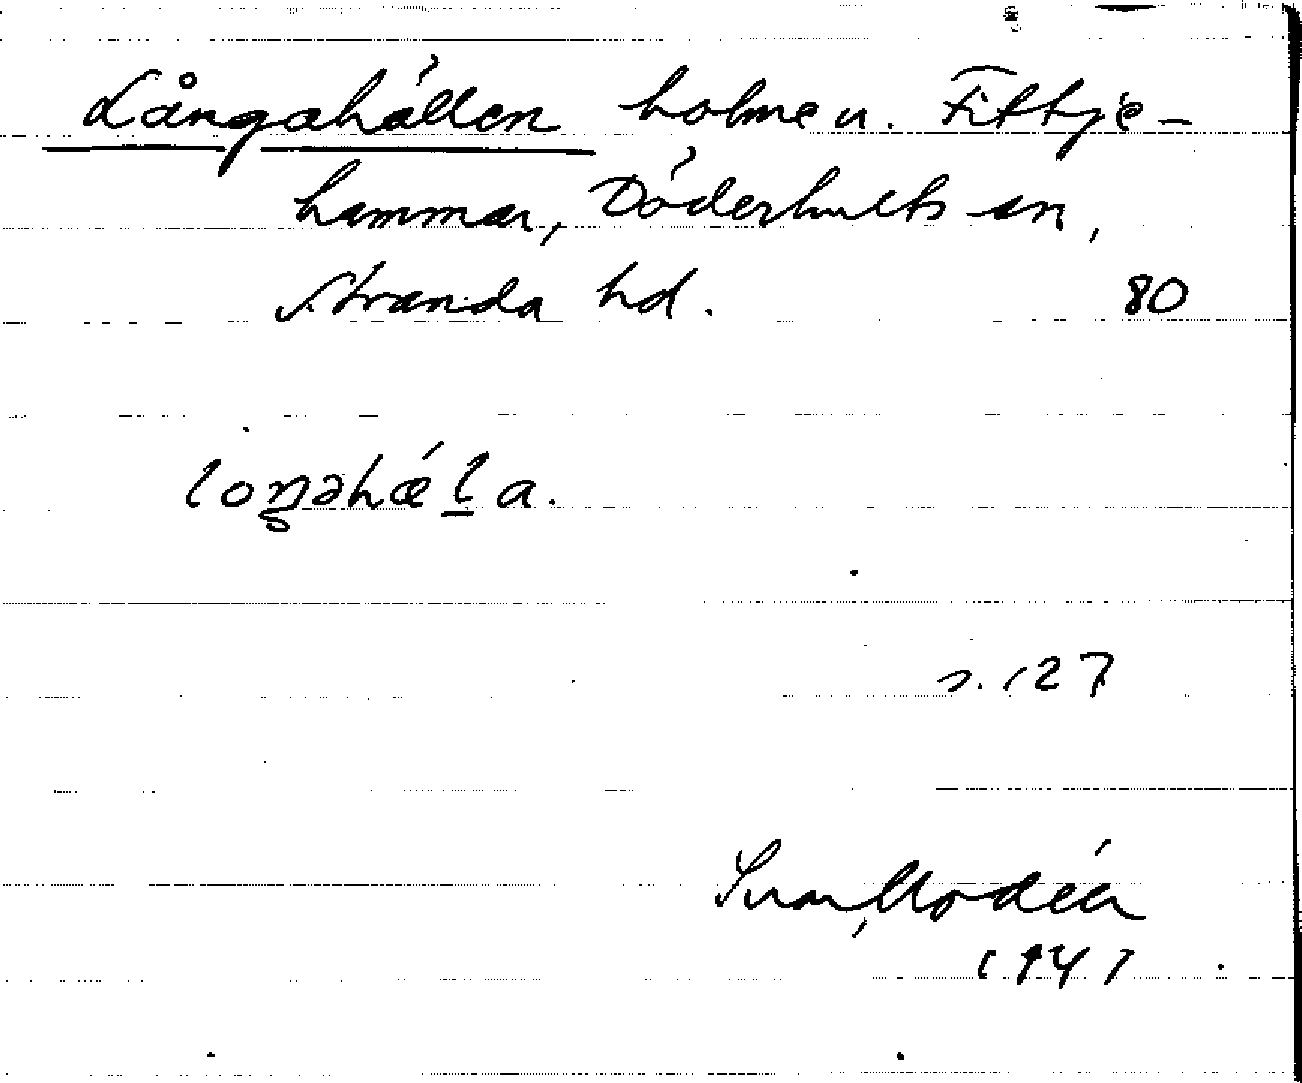 Långahällen holme u. Fittje-
hammar, Döderhults sn,
Stranda hd. 80
loŋəhǽḷa.
s. 127
Ivar Modéer
1941.